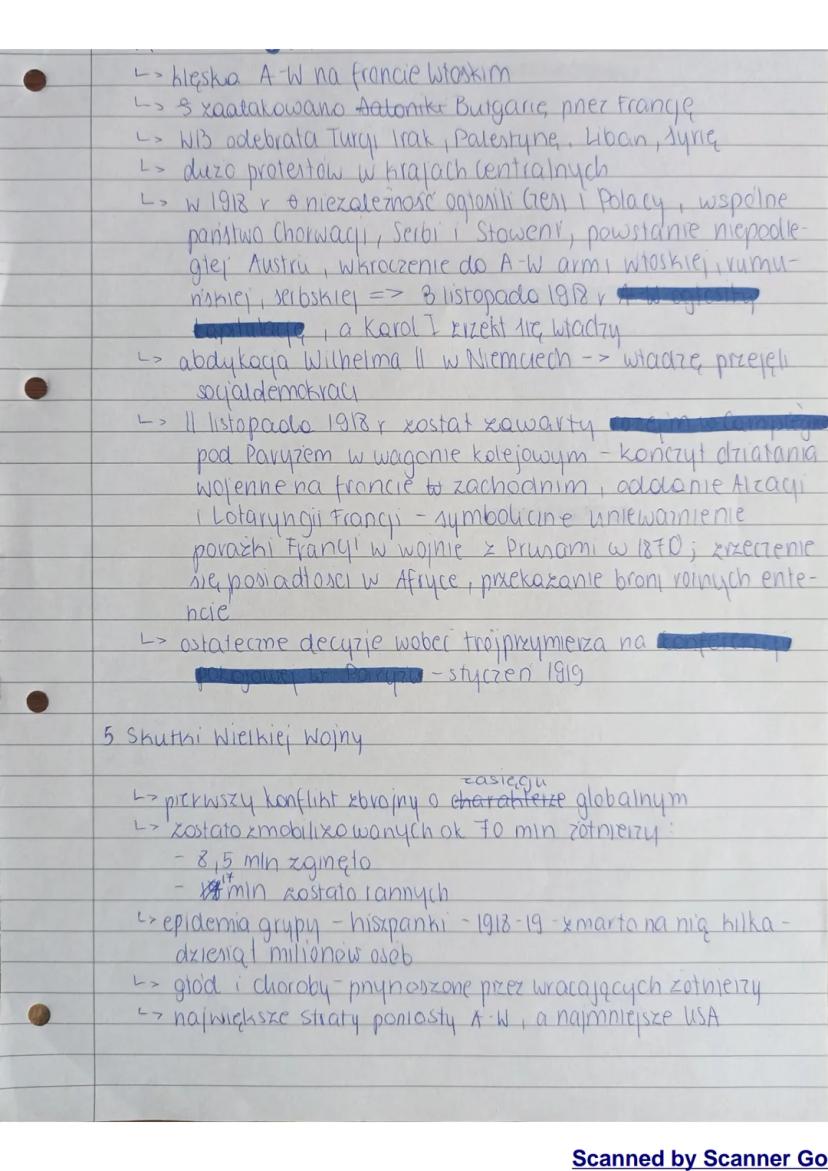 ↳ klęska A-W na froncie włoskim
↳ zaatakowano Bułgarię przez Francję
↳ WB odebrała Turcji Irak, Palestynę, Liban, Syrię
↳ dużo protestów w krajach centralnych
↳ w 1918 r niezależność ogłosili Czesi i Polacy, wspólne
państwo Chorwacji, Serbi i Słoweni, powstanie niepodle-
głej Austrii, wkroczenie do A-W armi włoskiej, rumu-
ńskiej, serbskiej => 3 listopada 1918 r A-W ogłosiły
kapitulację, a Karol I zrzekł się władzy
↳ abdykacja Wilhelma II w Niemczech -> władzę przejęli
socjaldemokraci
↳ 11 listopada 1918 r został zawarty rozejm w Compiègne
pod Paryżem w wagonie kolejowym - kończył działania
wojenne na froncie zachodnim, oddanie Alzacji
i Lotaryngii Francji - symboliczne unieważnienie
porażki Francji w wojnie z Prusami w 1870; zrzeczenie
się posiadłości w Afryce, przekazanie broni różnych ente-
ncie
↳ ostateczne decyzje wobec trójprzymierza na konferencji
pokojowej w Paryżu - styczeń 1919
5 Skutki Wielkiej Wojny
zasięgu
↳ pierwszy konflikt zbrojny o charakterze globalnym
↳ zostało zmobilizowanych ok 70 mln żołnierzy:
- 8,5 mln zginęło
- 17 mln zostało rannych
↳ epidemia grypy - hiszpanki - 1918-19 - zmarło na nią kilka-
dziesiąt milionów osób
↳ głód i choroby - przynoszone przez wracających żołnierzy
↳ największe straty poniosły A-W, a najmniejsze USA
Scanned by Scanner Go